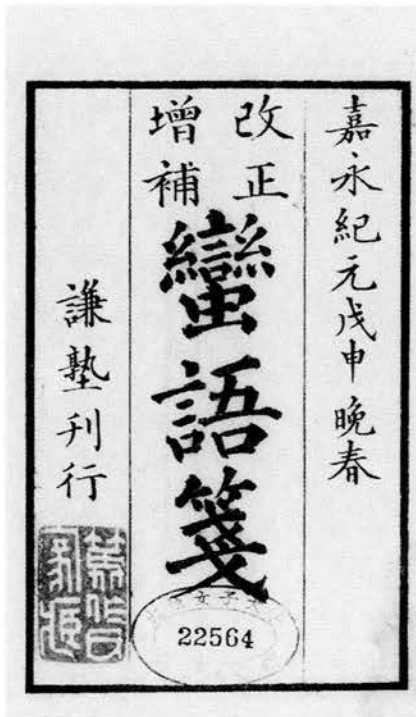 嘉永紀元戊申晩春
改正
增補
蠻語箋
謙塾刊行
22564